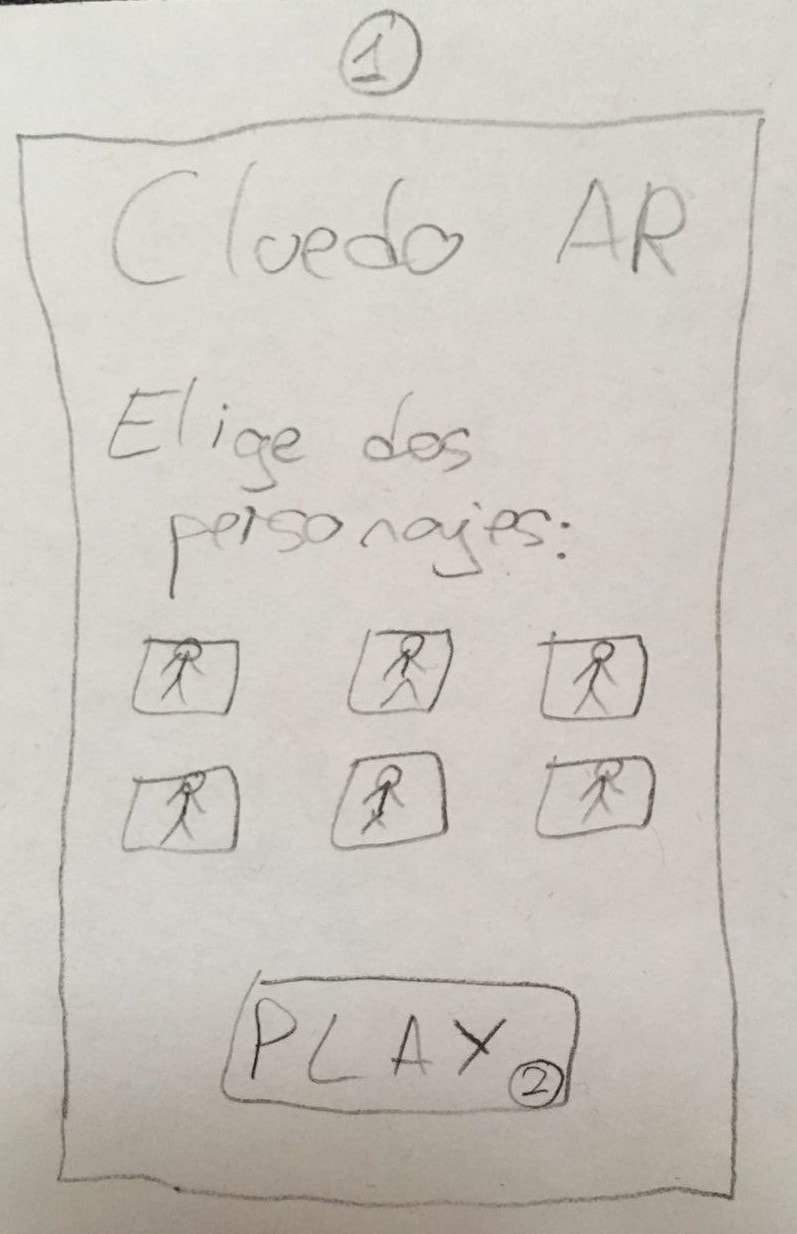 1
Cluedo AR
Elige dos
personajes:
PLAY 2